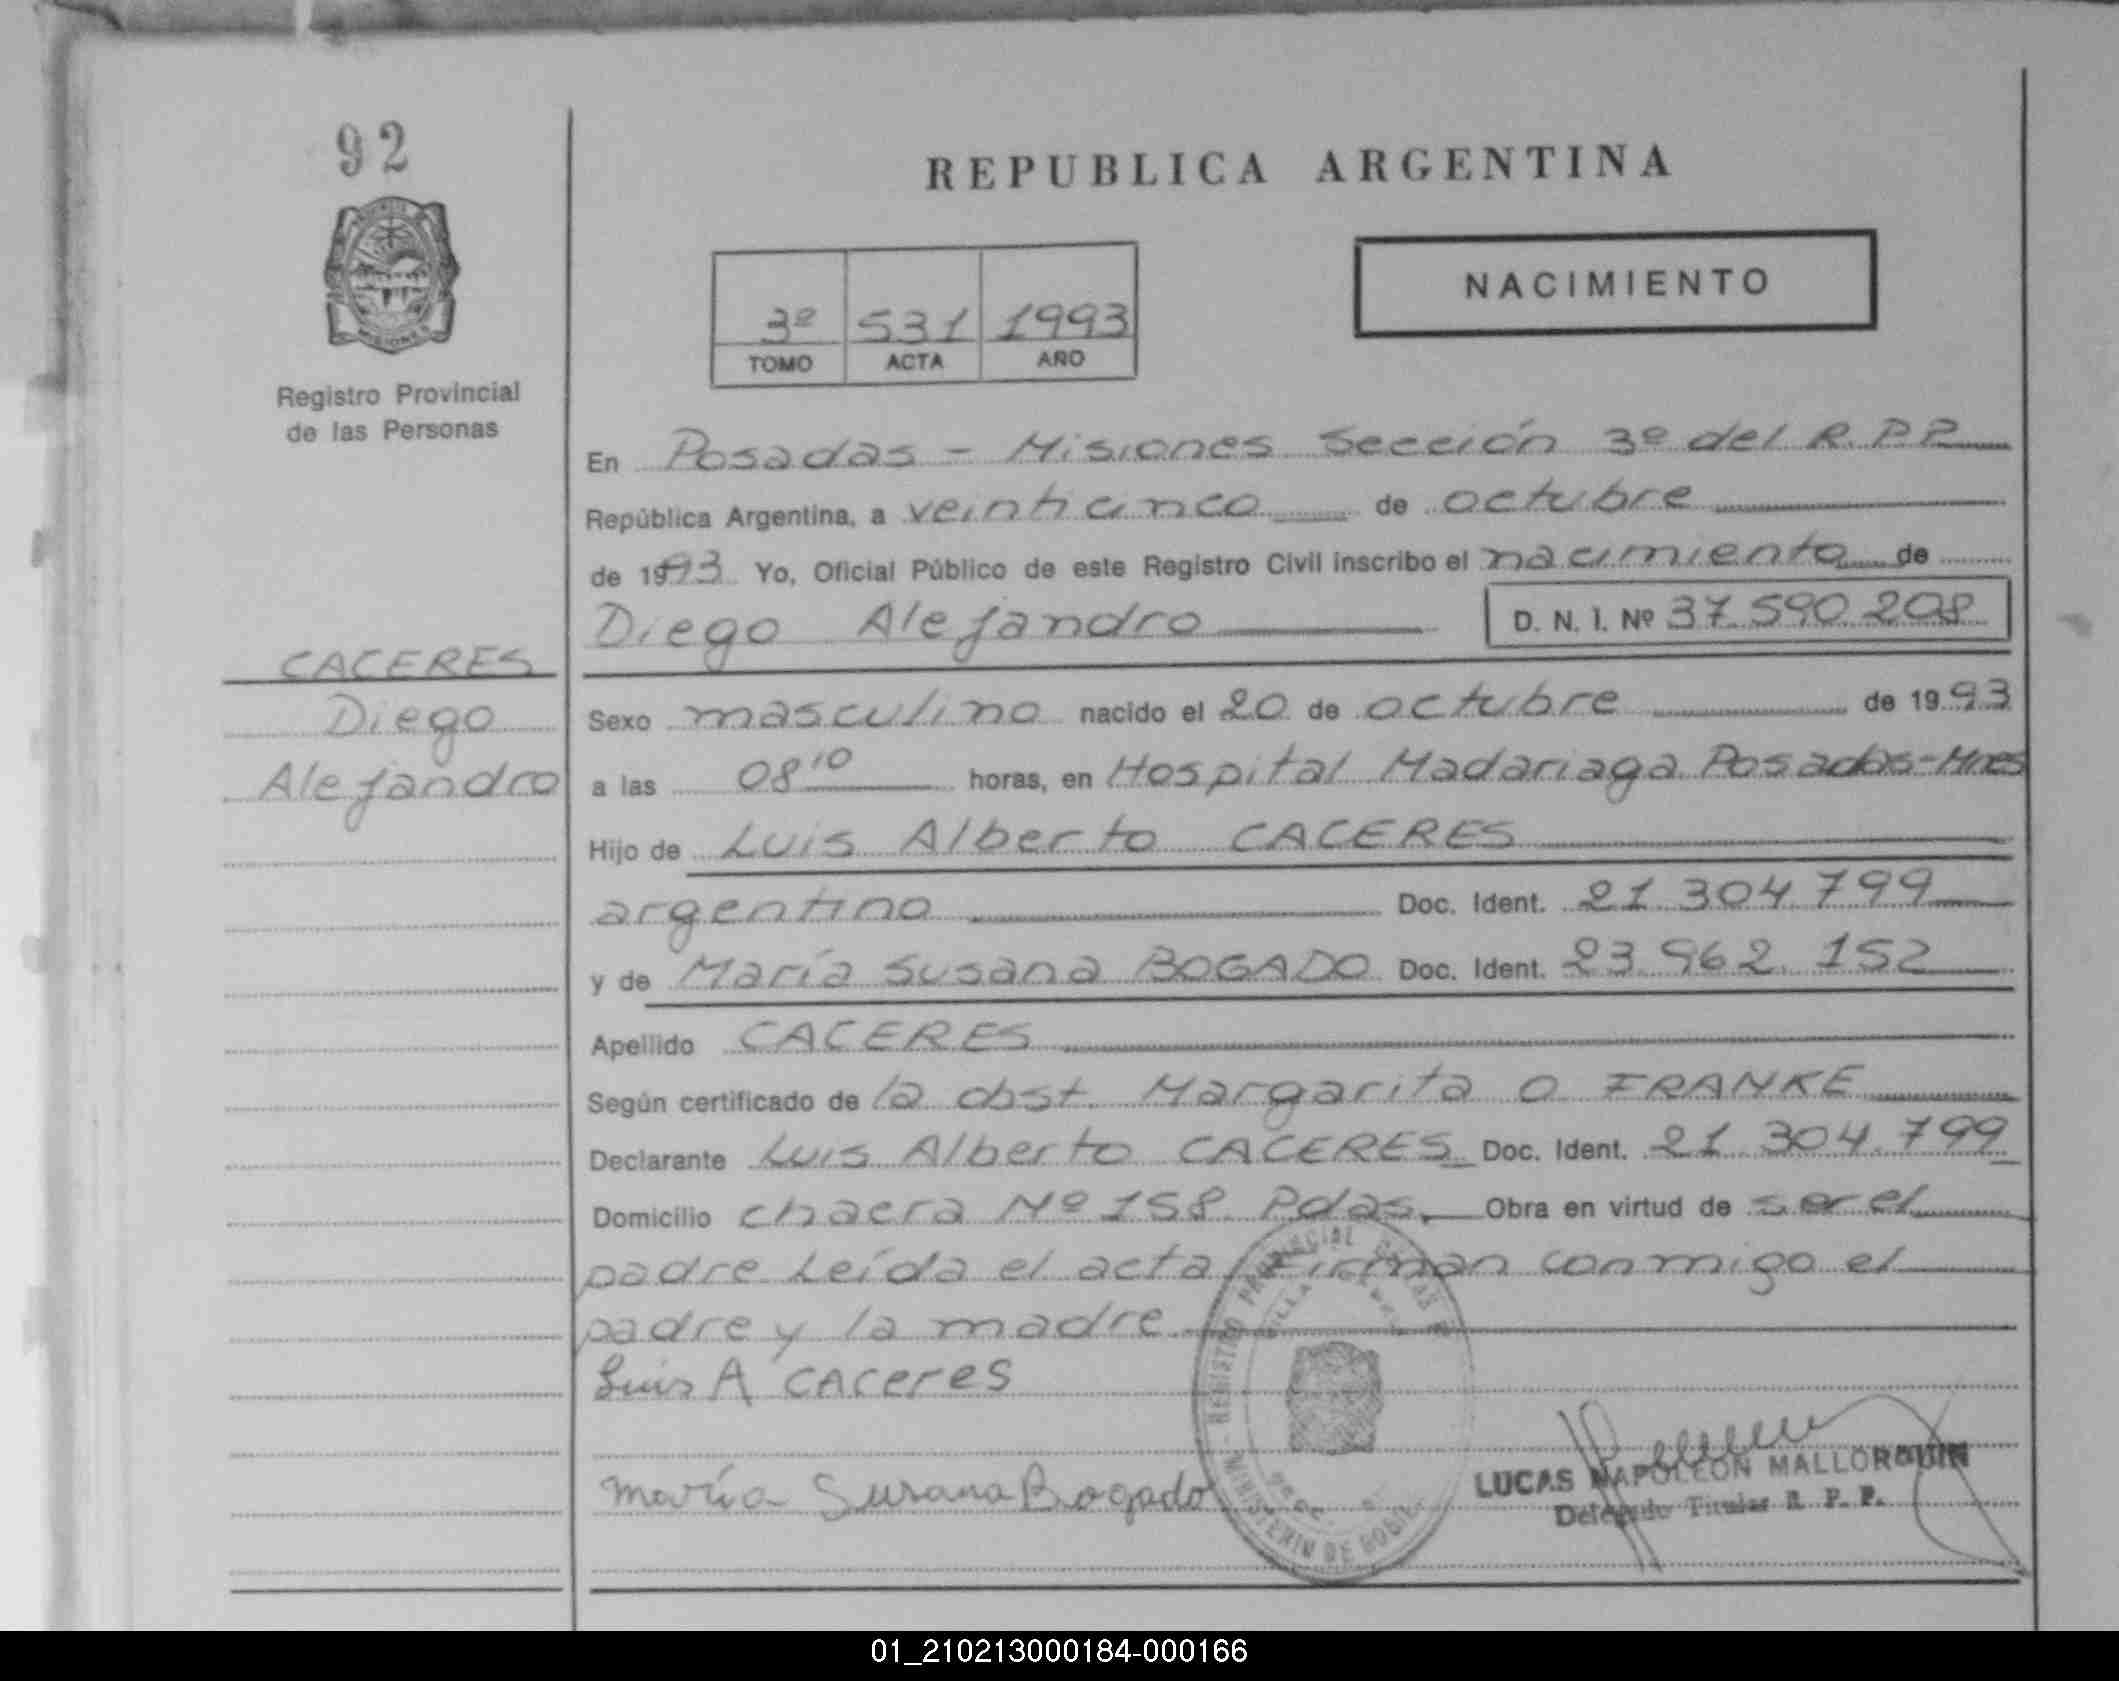 92
REPUBLICA ARGENTINA
NACIMIENTO
3º 531 1993
TOMO ACTA AÑO
Registro Provincial
de las Personas
En Posadas - Misiones Sección 3º del R.P.P.
República Argentina, a veinticinco de octubre
de 1993 Yo, Oficial Público de este Registro Civil inscribo el nacimiento de
Diego Alejandro D. N. I. Nº 37.590.208
CACERES
Diego
Alejandro
Sexo masculino nacido el 20 de octubre de 1993
a las 08¹⁰ horas, en Hospital Madariaga Posadas-Mnes
Hijo de Luis Alberto CACERES
argentino Doc. Ident. 21.304.799
y de María Susana BOGADO Doc. Ident. 23.962.152
Apellido CACERES
Según certificado de la obst. Margarita O FRANKE
Declarante Luis Alberto CACERES Doc. Ident. 21.304.799
Domicilio chacra Nº 158 Pdas. Obra en virtud de ser el
padre Leída el acta firman conmigo el
padre y la madre
Luis A CACeres
María Susana Bogado
REGISTRO PROVINCIAL DE LAS
MINISTERIO DE GOBIE
LUCAS NAPOLEON MALLORQUIN
Delegado Titular R. P. P.
01_210213000184-000166